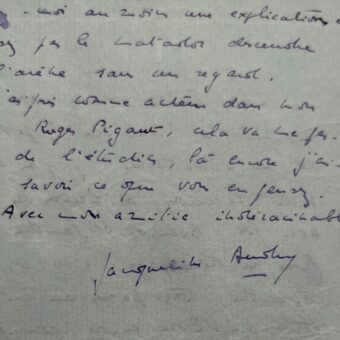 - moi au moins une explication
pas le matador descendre
l'arène sans un regard.
j'ai pris comme acteur dans mon
Roger Pigaut, cela va me
de l'étudier, là encore j'ai
savoir ce que vous en pensez.
Avec mon amitié indéracinable
Jacqueline Audry